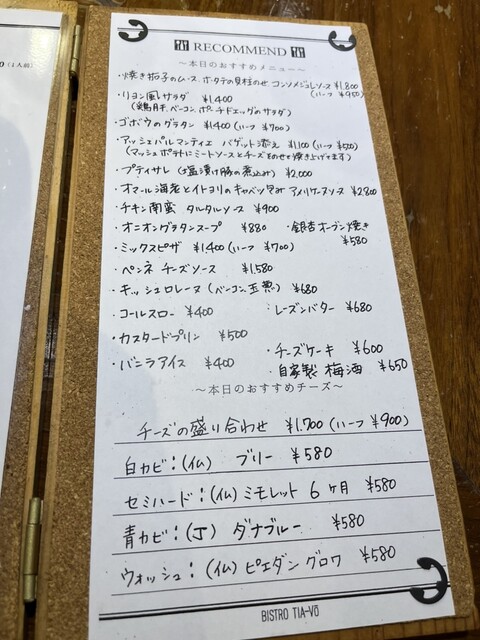 0(1人前)
RECOMMEND
～本日のおすすめメニュー～
・焼き茄子のムース ホタテの貝柱のせ コンソメジュレソース ¥1,800
(ハーフ ¥950)
・リヨン風サラダ ¥1,400
(鶏肝、ベーコン、ポーチドエッグのサラダ)
・ゴボウのグラタン ¥1,400(ハーフ ¥700)
・アッシェパルマンティエ バゲット添え ¥1,100(ハーフ ¥550)
(マッシュポテトにミートソースとチーズをのせて焼き上げてます)
・プティサレ(塩漬け豚の煮込み) ¥2,000
・オマール海老とイトヨリのキャベツ包み アメリケーヌソース ¥2,800
・チキン南蛮 タルタルソース ¥900
・オニオングラタンスープ ¥880
・銀杏オーブン焼き ¥580
・ミックスピザ ¥1,400(ハーフ ¥700)
・ペンネ チーズソース ¥1,580
・キッシュロレーヌ(ベーコン、玉葱) ¥680
・コールスロー ¥400
・レーズンバター ¥680
・カスタードプリン ¥500
・チーズケーキ ¥600
・バニラアイス ¥400
・自家製 梅酒 ¥650
～本日のおすすめチーズ～
チーズの盛り合わせ ¥1,700(ハーフ ¥900)
白カビ:(仏) ブリー ¥580
セミハード:(仏)ミモレット 6ヶ月 ¥580
青カビ:(丁) ダナブルー ¥580
ウォッシュ:(仏)ピエダングロワ ¥580
BISTRO TIA-VÖ